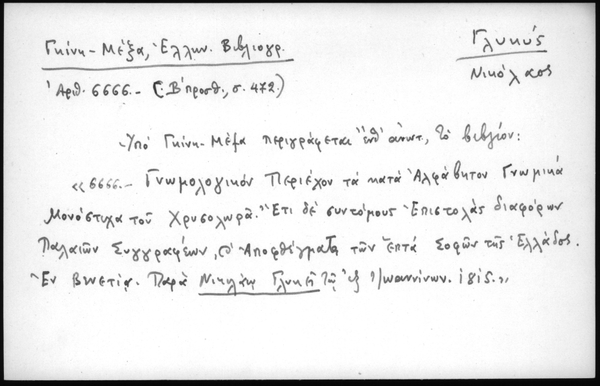 Γκίνη - Μέξα, Ἑλλην. Βιβλιογρ.
Γλυκύς
Νικόλαος
Ἀριθ. 6666.- (Β' προσθ., σ. 472.)
-Ὑπό Γκίνη - Μέξα περιγράφεται τό βιβλίον:
«6666.- Γνωμολογικόν Περιέχον τά κατά Ἀλφάβητον Γνωμικά
Μονόστιχα τοῦ Χρυσολωρᾶ. Ἔτι δέ συντόμους Ἐπιστολάς διαφόρων
Παλαιῶν Συγγραφέων, Ἀποφθέγματα τῶν Ἑπτά Σοφῶν τῆς Ἑλλάδος.
Ἐν Βενετίᾳ. Παρά Νικολάῳ Γλυκεῖ Τῷ ἐξ Ἰωαννίνων. 1815.»